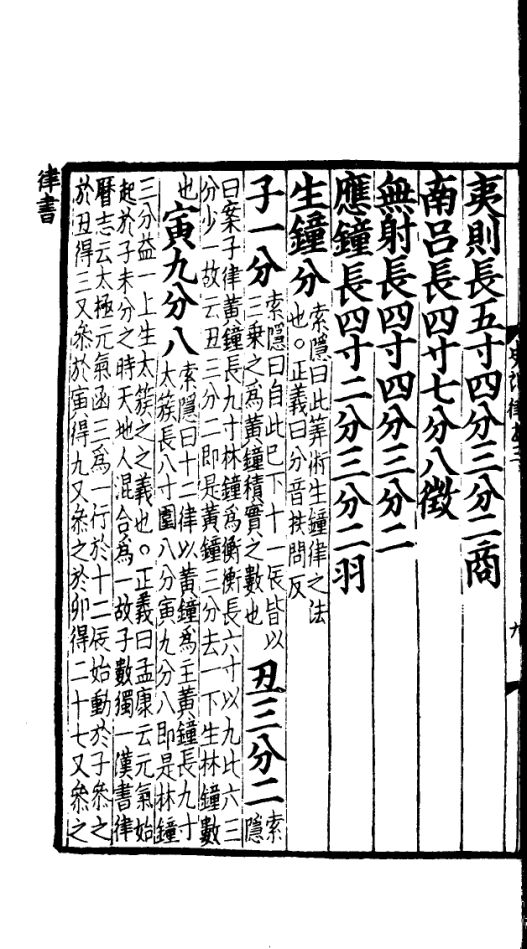 夷則長五寸四分三分二商
南呂長四寸七分八徵
無射長四寸四分三分二
應鐘長四寸二分三分二羽
生鐘分
索隱曰此筭術生鐘律之法
也○正義曰分音扶問反
子一分
索隱曰自此已下十一辰皆以
三乘之爲黃鐘積實之數也
丑三分二
索
隱
曰案子律黃鐘長九寸林鐘爲衡衡長六寸以九比六三
分少一故云丑三分二即是黃鐘三分去一下生林鐘數
也
寅九分八
索隱曰十二律以黃鐘爲主黃鐘長九寸
太蔟長八寸圍八分寅九分八即是林鐘
三分益一上生太蔟之之義也○正義曰孟康云元氣始
起於子未分之時天地人混合爲一故子數獨一漢書律
曆志云太極元氣函三爲一行於十二辰始動於子參之
於丑得三又參於寅得九又參之於卯得二十七又參之
律書